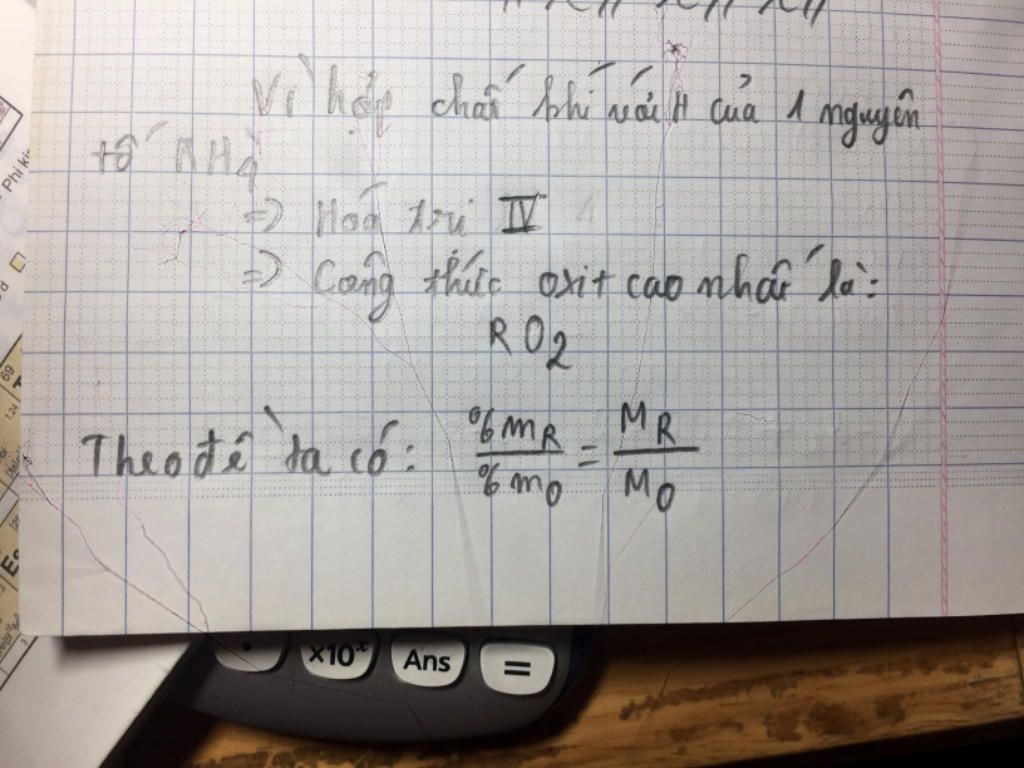 Vì hợp chất khí với H của 1 nguyên
tố RH4
=> Hoá trị IV
=> Công thức oxit cao nhất là:
RO2
Theo đề ta có: %mR / %mO = MR / MO
Phi ki
69
×10ˣ Ans =